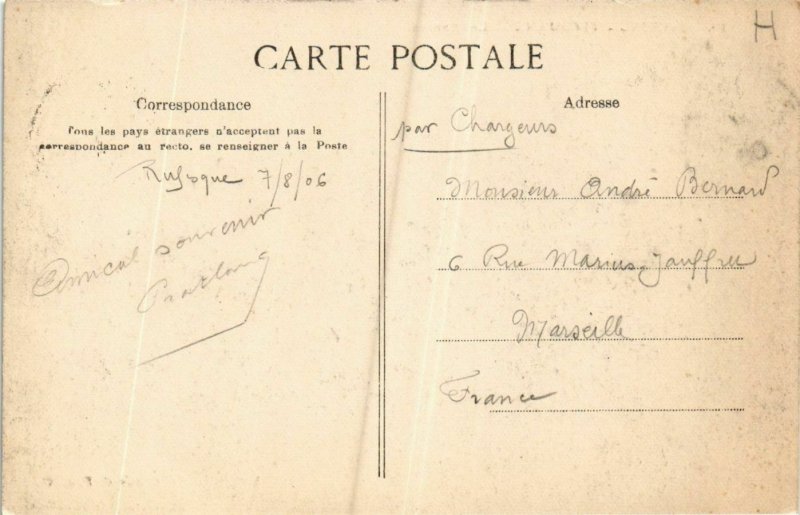 H
CARTE POSTALE
Correspondance
Tous les pays étrangers n'acceptent pas la
correspondance au recto, se renseigner à la Poste
Rufisque 7/8/06
Amical souvenir
Adresse
par Chargeurs
Monsieur André Bernard
6 Rue Marius Jauffret
Marseille
France